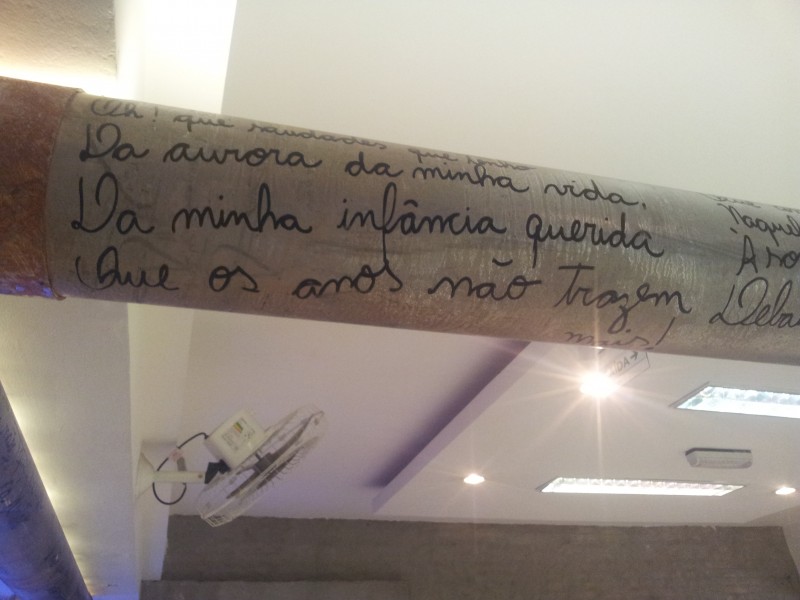 Oh! que saudades que tenho
Da aurora da minha vida,
Da minha infância querida
Que os anos não trazem
mais!
Naquel
À som
Debai